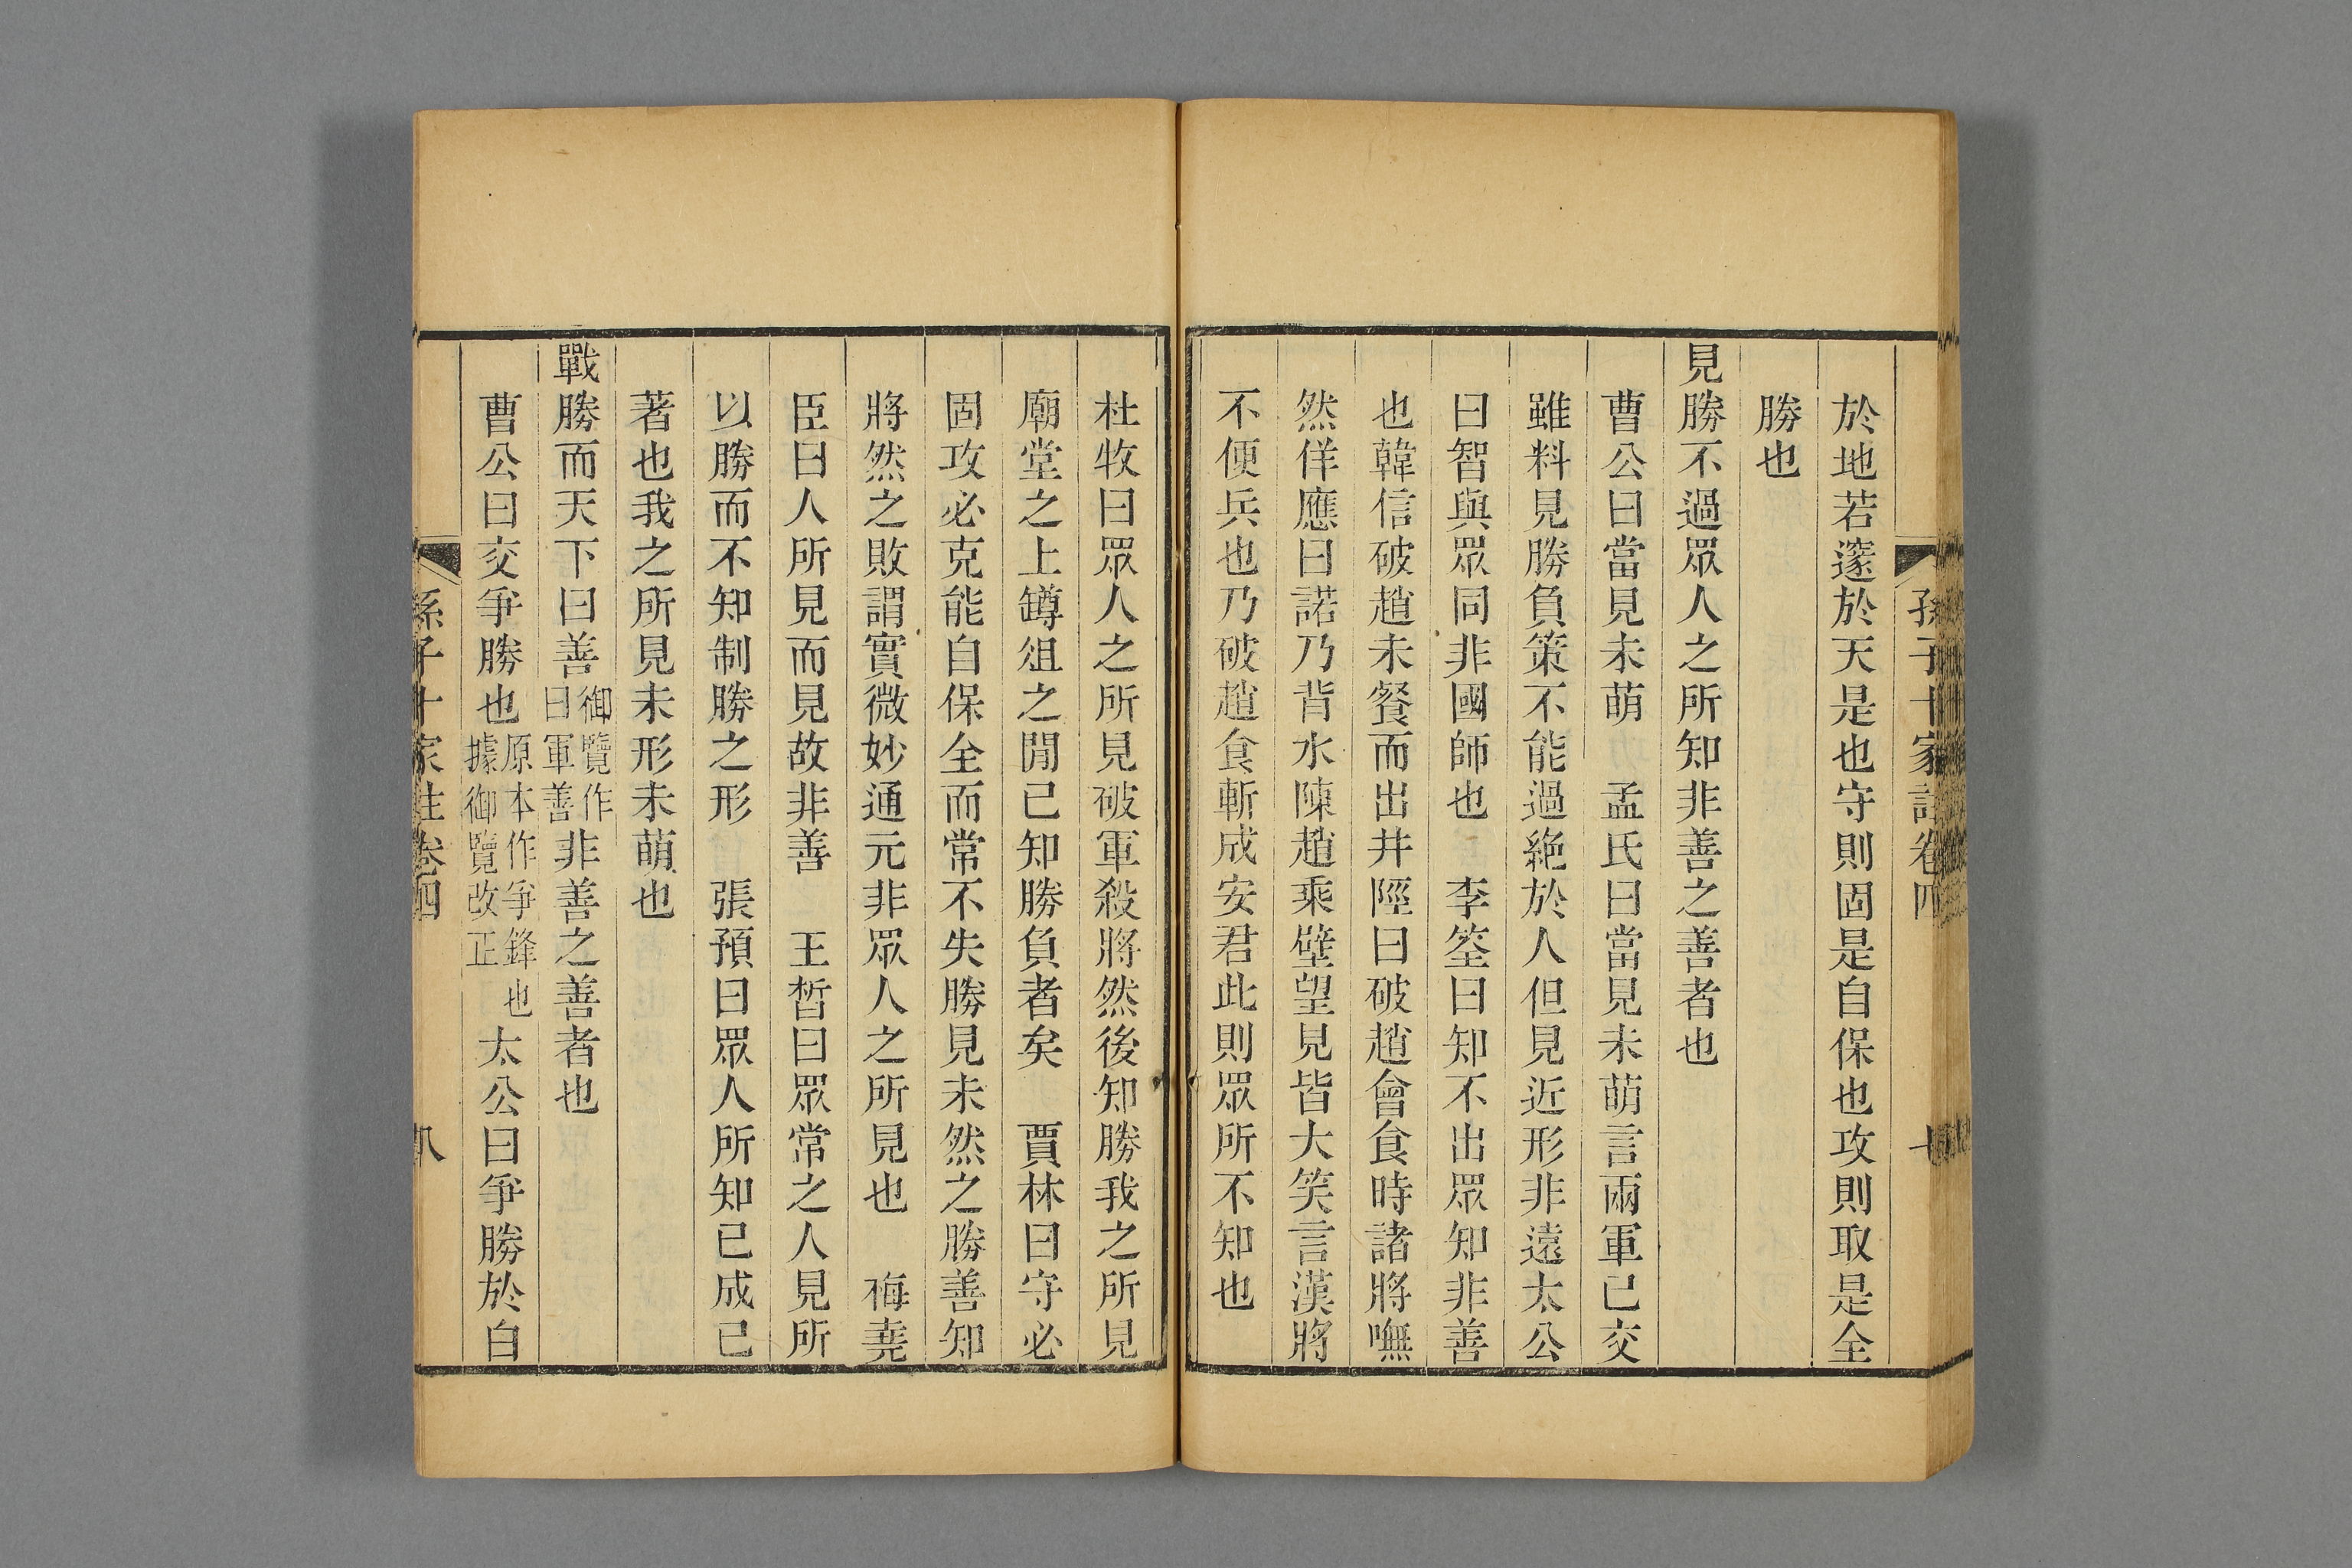 孫子十家註卷四
七
於地若邃於天是也守則固是自保也攻則取是全
勝也
見勝不過眾人之所知非善之善者也
曹公曰當見未萌　孟氏曰當見未萌言兩軍已交
雖料見勝負策不能過絶於人但見近形非遠太公
曰智與眾同非國師也　李筌曰知不出眾知非善
也韓信破趙未餐而出井陘曰破趙會食時諸將嘸
然佯應曰諾乃背水陳趙乘壁望見皆大笑言漢將
不便兵也乃破趙食斬成安君此則眾所不知也
杜牧曰眾人之所見破軍殺將然後知勝我之所見
廟堂之上罇俎之閒已知勝負者矣　賈林曰守必
固攻必克能自保全而常不失勝見未然之勝善知
將然之敗謂實微妙通元非眾人之所見也　梅堯
臣曰人所見而見故非善　王晳曰眾常之人見所
以勝而不知制勝之形　張預曰眾人所知已成已
著也我之所見未形未萌也
戰勝而天下曰善御覽作曰軍善非善之善者也
曹公曰交爭勝也原本作爭鋒也據御覽改正太公曰爭勝於白
孫子十家註卷四
八